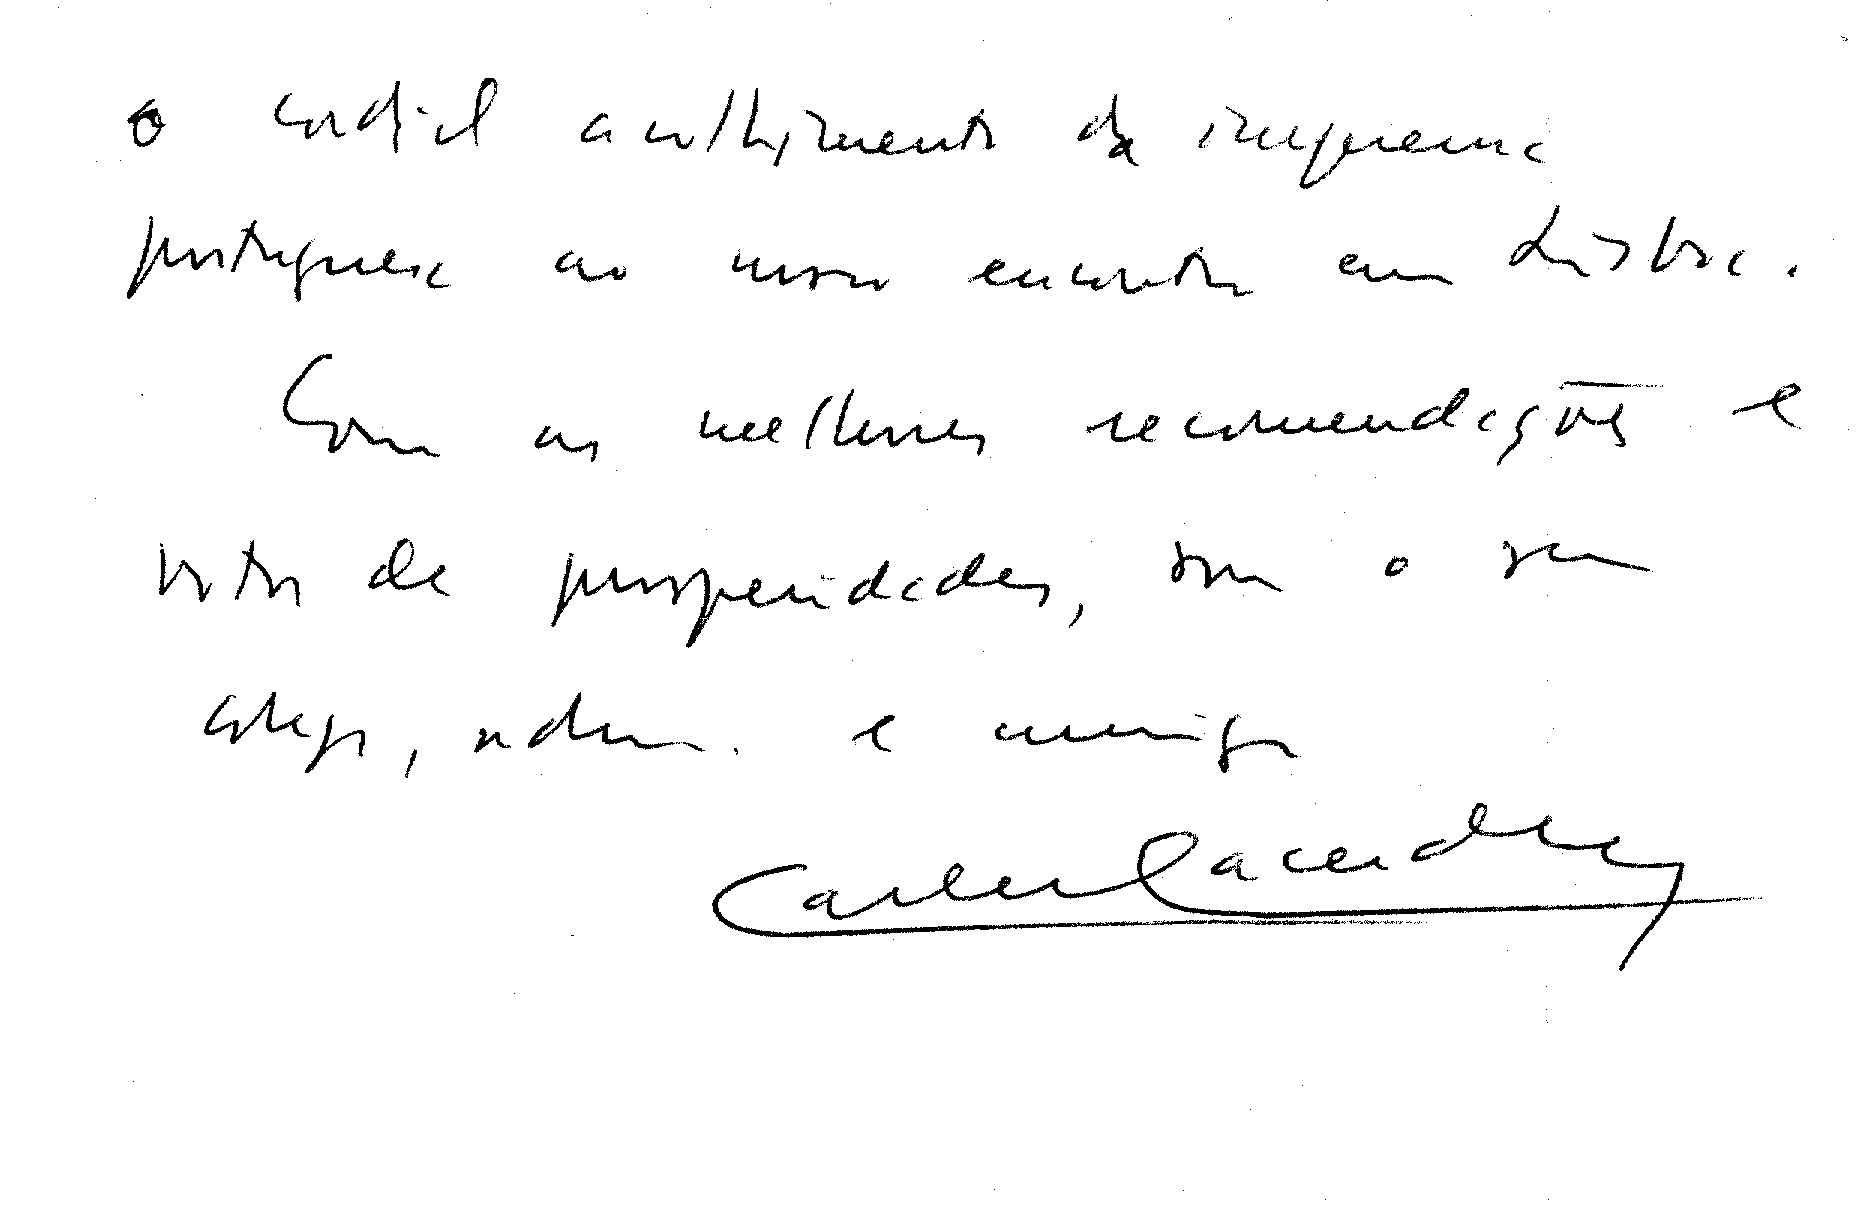 o cordial acolhimento da imprensa
portuguesa ao nosso encontro em Lisboa.
Com as melhores recomendações e
votos de prosperidades, sou o seu
colega, admor. e amigo
Carlos Lacerda